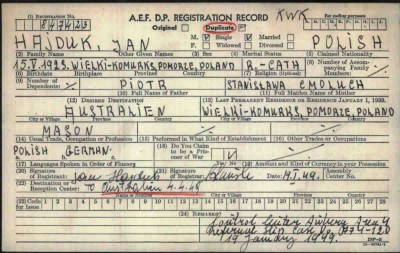 (1) REGISTRATION NO.
A.E.F. D.P. REGISTRATION RECORD KWK
For coding purposes
Original Duplicate
HAJDUK, JAN M. Single Married POLISH
F. Widowed Divorced
(2) Family Name Other Given Names (3) Sex (4) Marital Status (5) Claimed Nationality
15.V.1923. WIELKI-KOMURKS, POMORZE, POLAND R.-CATH
(6) Birthdate Birthplace Province Country (7) Religion (Optional) (8) Number of Accompanying Family Members:
(9) Number of Dependents: PIOTR STANISŁAWA CMOLUCH
(10) Full Name of Father (11) Full Maiden Name of Mother
(12) DESIRED DESTINATION (13) LAST PERMANENT RESIDENCE OR RESIDENCE JANUARY 1, 1938.
AUSTRALIEN WIELKI-KOMURKS, POMORZE, POLAND
City or Village Province Country City or Village Province Country
MASON
(14) Usual Trade, Occupation or Profession (15) Performed in What Kind of Establishment (16) Other Trades or Occupations
POLISH GERMAN.
(17) Languages Spoken in Order of Fluency (18) Do You Claim to be a Prisoner of War Yes No (19) Amount and Kind of Currency in your Possession
(20) Signature of Registrant: Jan Hajduk (21) Signature of Registrar: Date: 19.I.49. Assembly Center No.
(22) Destination or Reception Center: To Australien 4.4.49
City or Village Province Country
(23) Code for Issue 1 2 3 4 5 6 7 8 9 10 11 12 13 14 15 16 17 18 19 20 21 22 23 24 25 26 27 28
(24) REMARKS
Control Center
19 January 1949.
DP-2